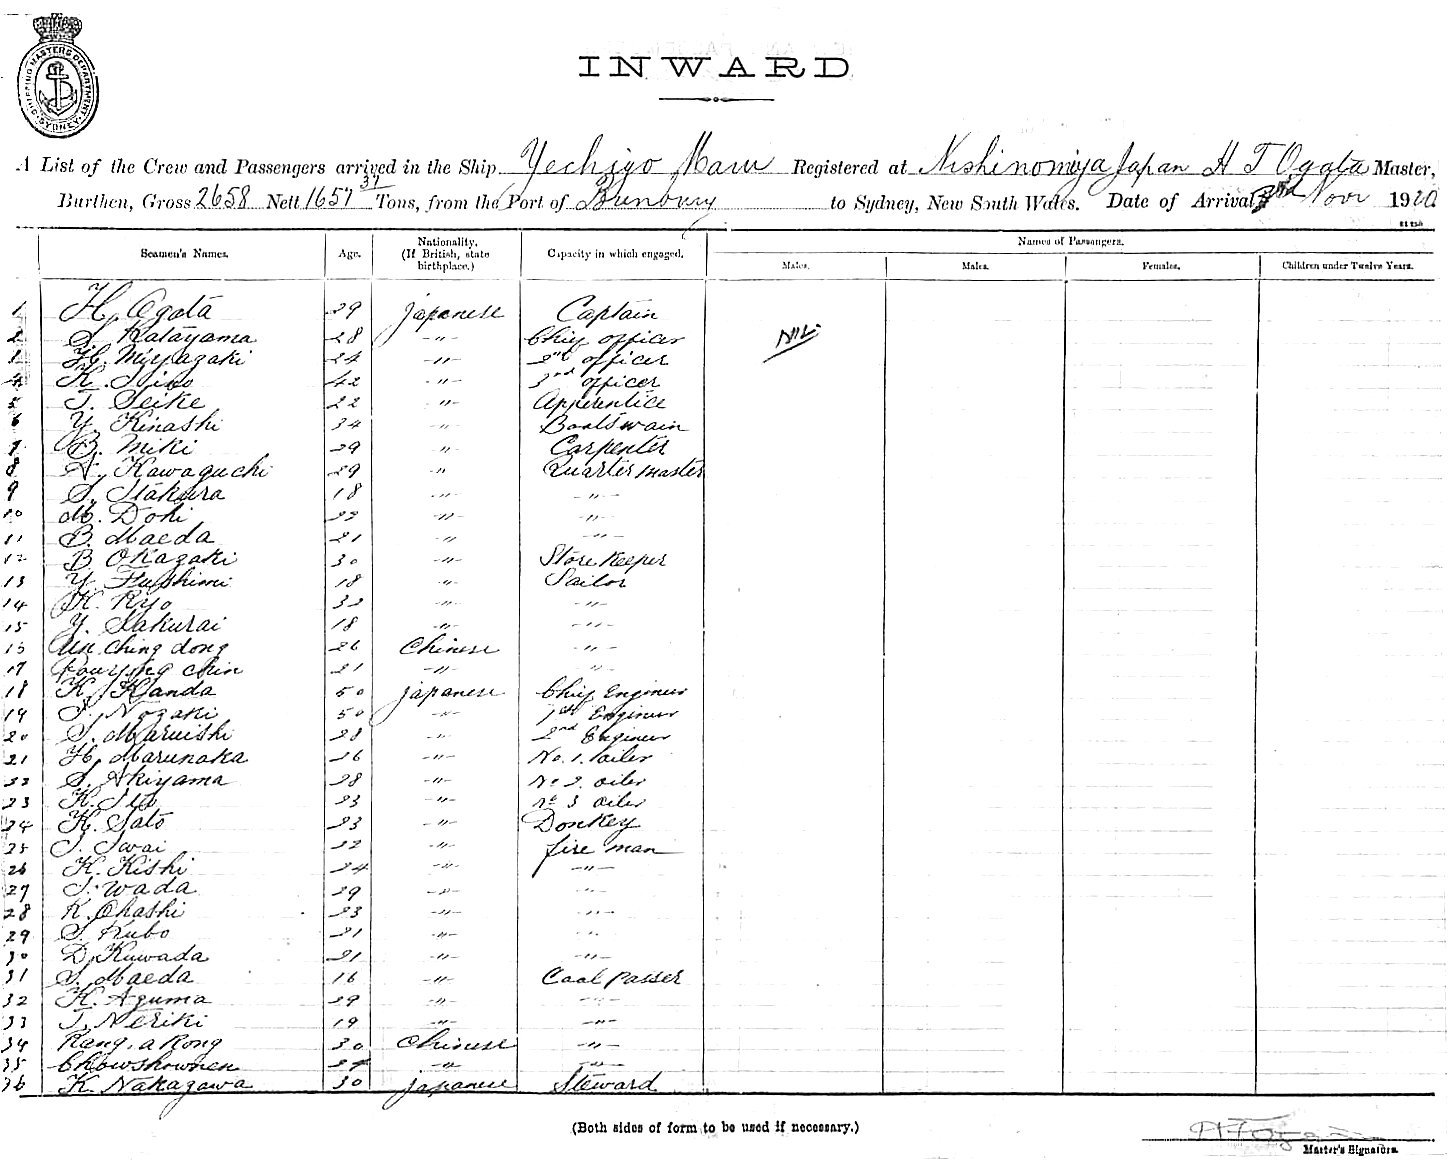 SHIPPING MASTERS DEPARTMENT SYDNEY
INWARD
A List of the Crew and Passengers arrived in the Ship Yechigo Maru Registered at Nishinomiya Japan H T Ogata Master,
Burthen, Gross 2658 Nett 1657 37 Tons, from the Port of Bunbury to Sydney, New South Wales. Date of Arrival 3rd Novr 1920
Seamen's Names. Age. Nationality. (If British, state birthplace.) Capacity in which engaged. Names of Passengers.
Males. Males. Females. Children under Twelve Years.
1 H. Ogata 29 Japanese Captain
NIL
2 S. Katayama 28 -"- Chief officer
3 H. Miyazaki 24 -"- 2nd officer
4 K. 42 -"- 3rd officer
5 T. Seike 22 -"- Apprentice
6 Y. Kinashi 34 -"- Boatswain
7 B. Miki 29 -"- Carpenter
8 Kawaguchi 29 -"- Quarter master
9 S. Itakura 18 -"- -"-
10 M. Doki 23 -"- -"-
11 B. Maeda 21 -"- -"-
12 B Okazaki 30 -"- Store Keeper
13 Y. Fushimi 18 -"- Sailor
14 K. Ryo 32 -"- -"-
15 Y. Sakurai 18 -"- -"-
16 Ching dong 26 Chinese -"-
17 chin 21 -"- -"-
18 K. Kanda 50 Japanese Chief Engineer
19 S. Nozaki 50 -"- 1st Engineer
20 S. Maruishi 28 -"- 2nd Engineer
21 H. Marunaka 26 -"- No. 1. oiler
22 S. Akiyama 28 -"- No 2. oiler
23 K. Ito 23 -"- No 3 oiler
24 K. Sato 23 -"- Donkey
25 S. Iwai 22 -"- fire man
26 K. Kishi 24 -"- -"-
27 S. Wada 29 -"- -"-
28 K. Ohashi 23 -"- -"-
29 S. Kubo 21 -"- -"-
30 D. Kuwada 21 -"- -"-
31 S. Maeda 16 -"- Coal Passer
32 K. Aguma 29 -"- -"-
33 T. Neriki 19 -"- -"-
34 Kang, a Kong 30 Chinese -"-
35 Chowshownen -"- -"-
36 K. Nakagawa 30 Japanese Steward
(Both sides of form to be used if necessary.)
Master's Signature.